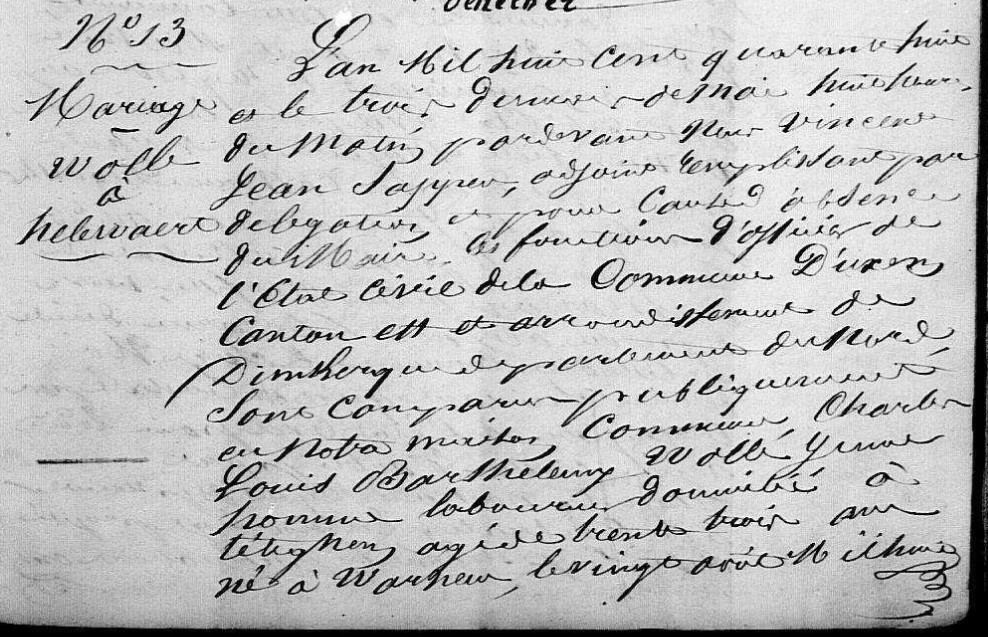 N° 13
Mariage
Wollé
à
helewaert
L'an Mil huit Cent quarante huit
et le trois de mai huit heures
du Matin, pardevant Nous Vincent
Jean adjoint Remplissant par
delegation et pour Cause d'absence
du Maire, les fonctions d'officier de
l'Etat Civil de la Commune D'uxem
Canton est et arrondissement de
Dunkerque departement du Nord
Sont Comparus publiquement
en Notre maison Commune, Charles
Louis Barthelemy Wollé jeune
homme laboureur domicilié à
têteghem, agé de trente trois ans
né à Warhem, le vingt août Mil huit